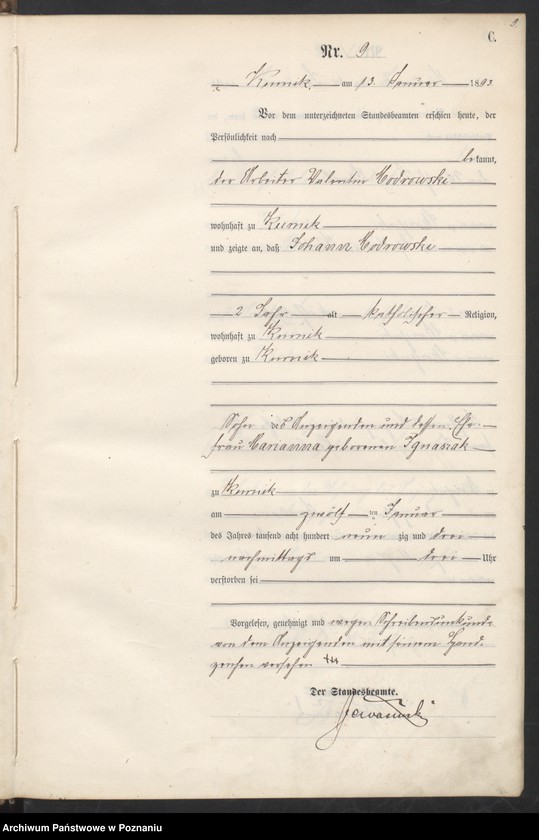 9.
C.
Nr. 9
Kurnik, am 13. Januar 1893
Vor dem unterzeichneten Standesbeamten erschien heute, der
Persönlichkeit nach
bekannt,
der Arbeiter Valentin Modrowski
wohnhaft zu Kurnik
und zeigte an, daß Johann Modrowski
2 Jahr alt katholischer Religion,
wohnhaft zu Kurnik
geboren zu Kurnik
Sohn des Anzeigenden und dessen Ehe-
frau Marianna geborenen Ignasiak
zu Kurnik
am zwölf ten Januar
des Jahres tausend acht hundert neun zig und drei
nachmittags um drei Uhr
verstorben sei
Vorgelesen, genehmigt und wegen Schreibensunkunde
von dem Anzeigenden mit seinem Hand-
zeichen versehen +++
Der Standesbeamte.
Archiwum Państwowe w Poznaniu